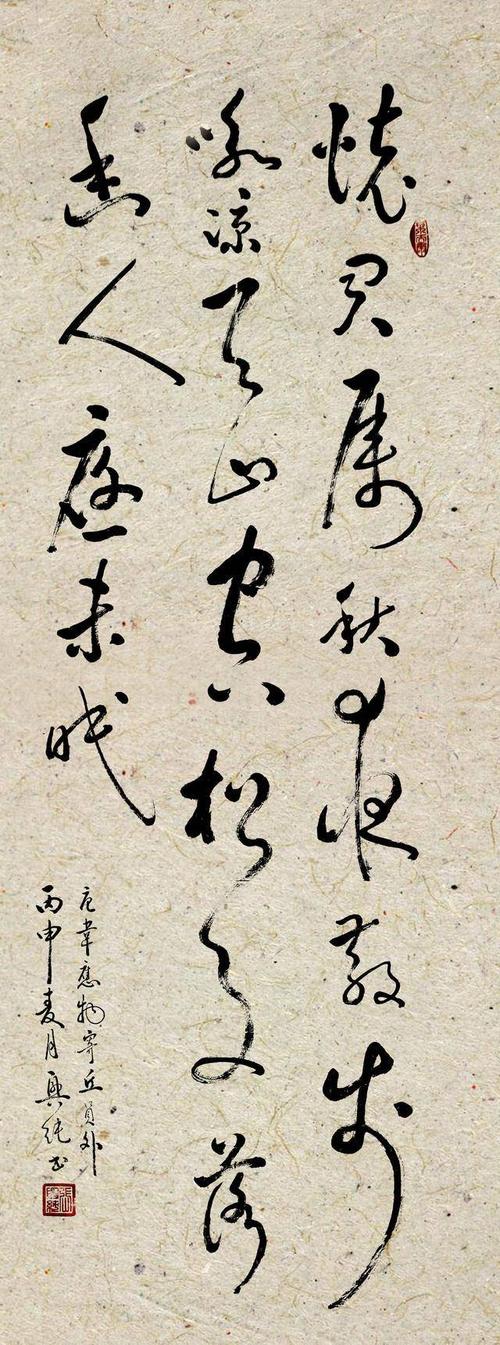 懷君属秋夜散步
咏涼天山空松子落
幽人應未眠
唐韋應物寄丘員外
丙申麦月興純书